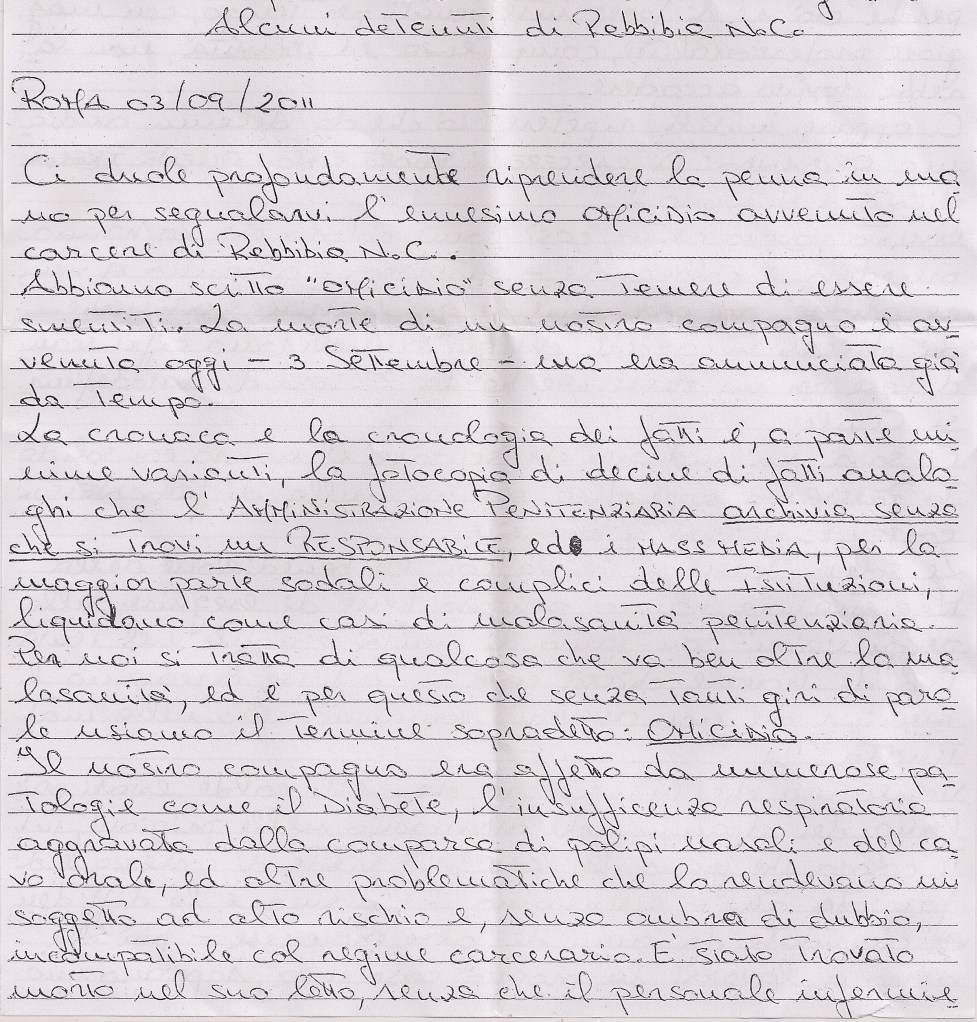 Alcuni detenuti di Rebbibia N.C.
ROMA 03/09/2011
Ci duole profondamente riprendere la penna in ma
no per segnalarvi l'ennesimo OMICIDIO avvenuto nel
carcere di Rebbibia N.C..
Abbiamo scitto "OMICIDIO" senza temere di essere
smentiti. La morte di un nostro compagno è av-
venuta oggi - 3 Settembre - ma era annunciata già
da tempo.
La cronaca e la cronologia dei fatti è, a parte mi
nime varianti, la fotocopia di decine di fatti analo-
ghi che l'AMMINISTRAZIONE PENITENZIARIA archivia senza
che si trovi un RESPONSABILE, ed i MASS MEDIA, per la
maggior parte sodali e complici delle Istituzioni,
liquidano come casi di malasanità penitenziaria.
Per noi si tratta di qualcosa che va ben oltre la ma
lasanità, ed è per questo che senza tanti giri di paro-
le usiamo il termine sopradetto: OMICIDIO.
Il nostro compagno era affetto da numerose pa-
tologie come il Diabete, l'insufficenza respiratoria
aggravata dalla comparsa di polipi nasali e del ca-
vo orale, ed altre problematiche che lo rendevano un
soggetto ad alto rischio e, senza ombra di dubbio,
incompatibile col regime carcerario. E stato trovato
morto nel suo letto, senza che il personale infermie